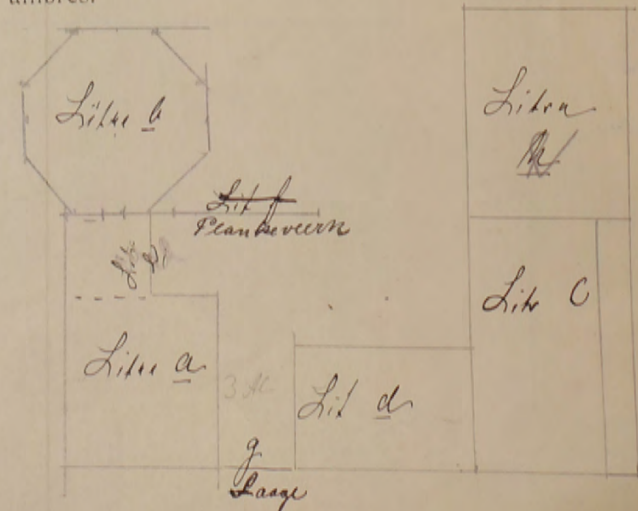 Litra b
Litra
Lit f
Plankeværk
Litr C
Litra a
Lit d
g
Laage